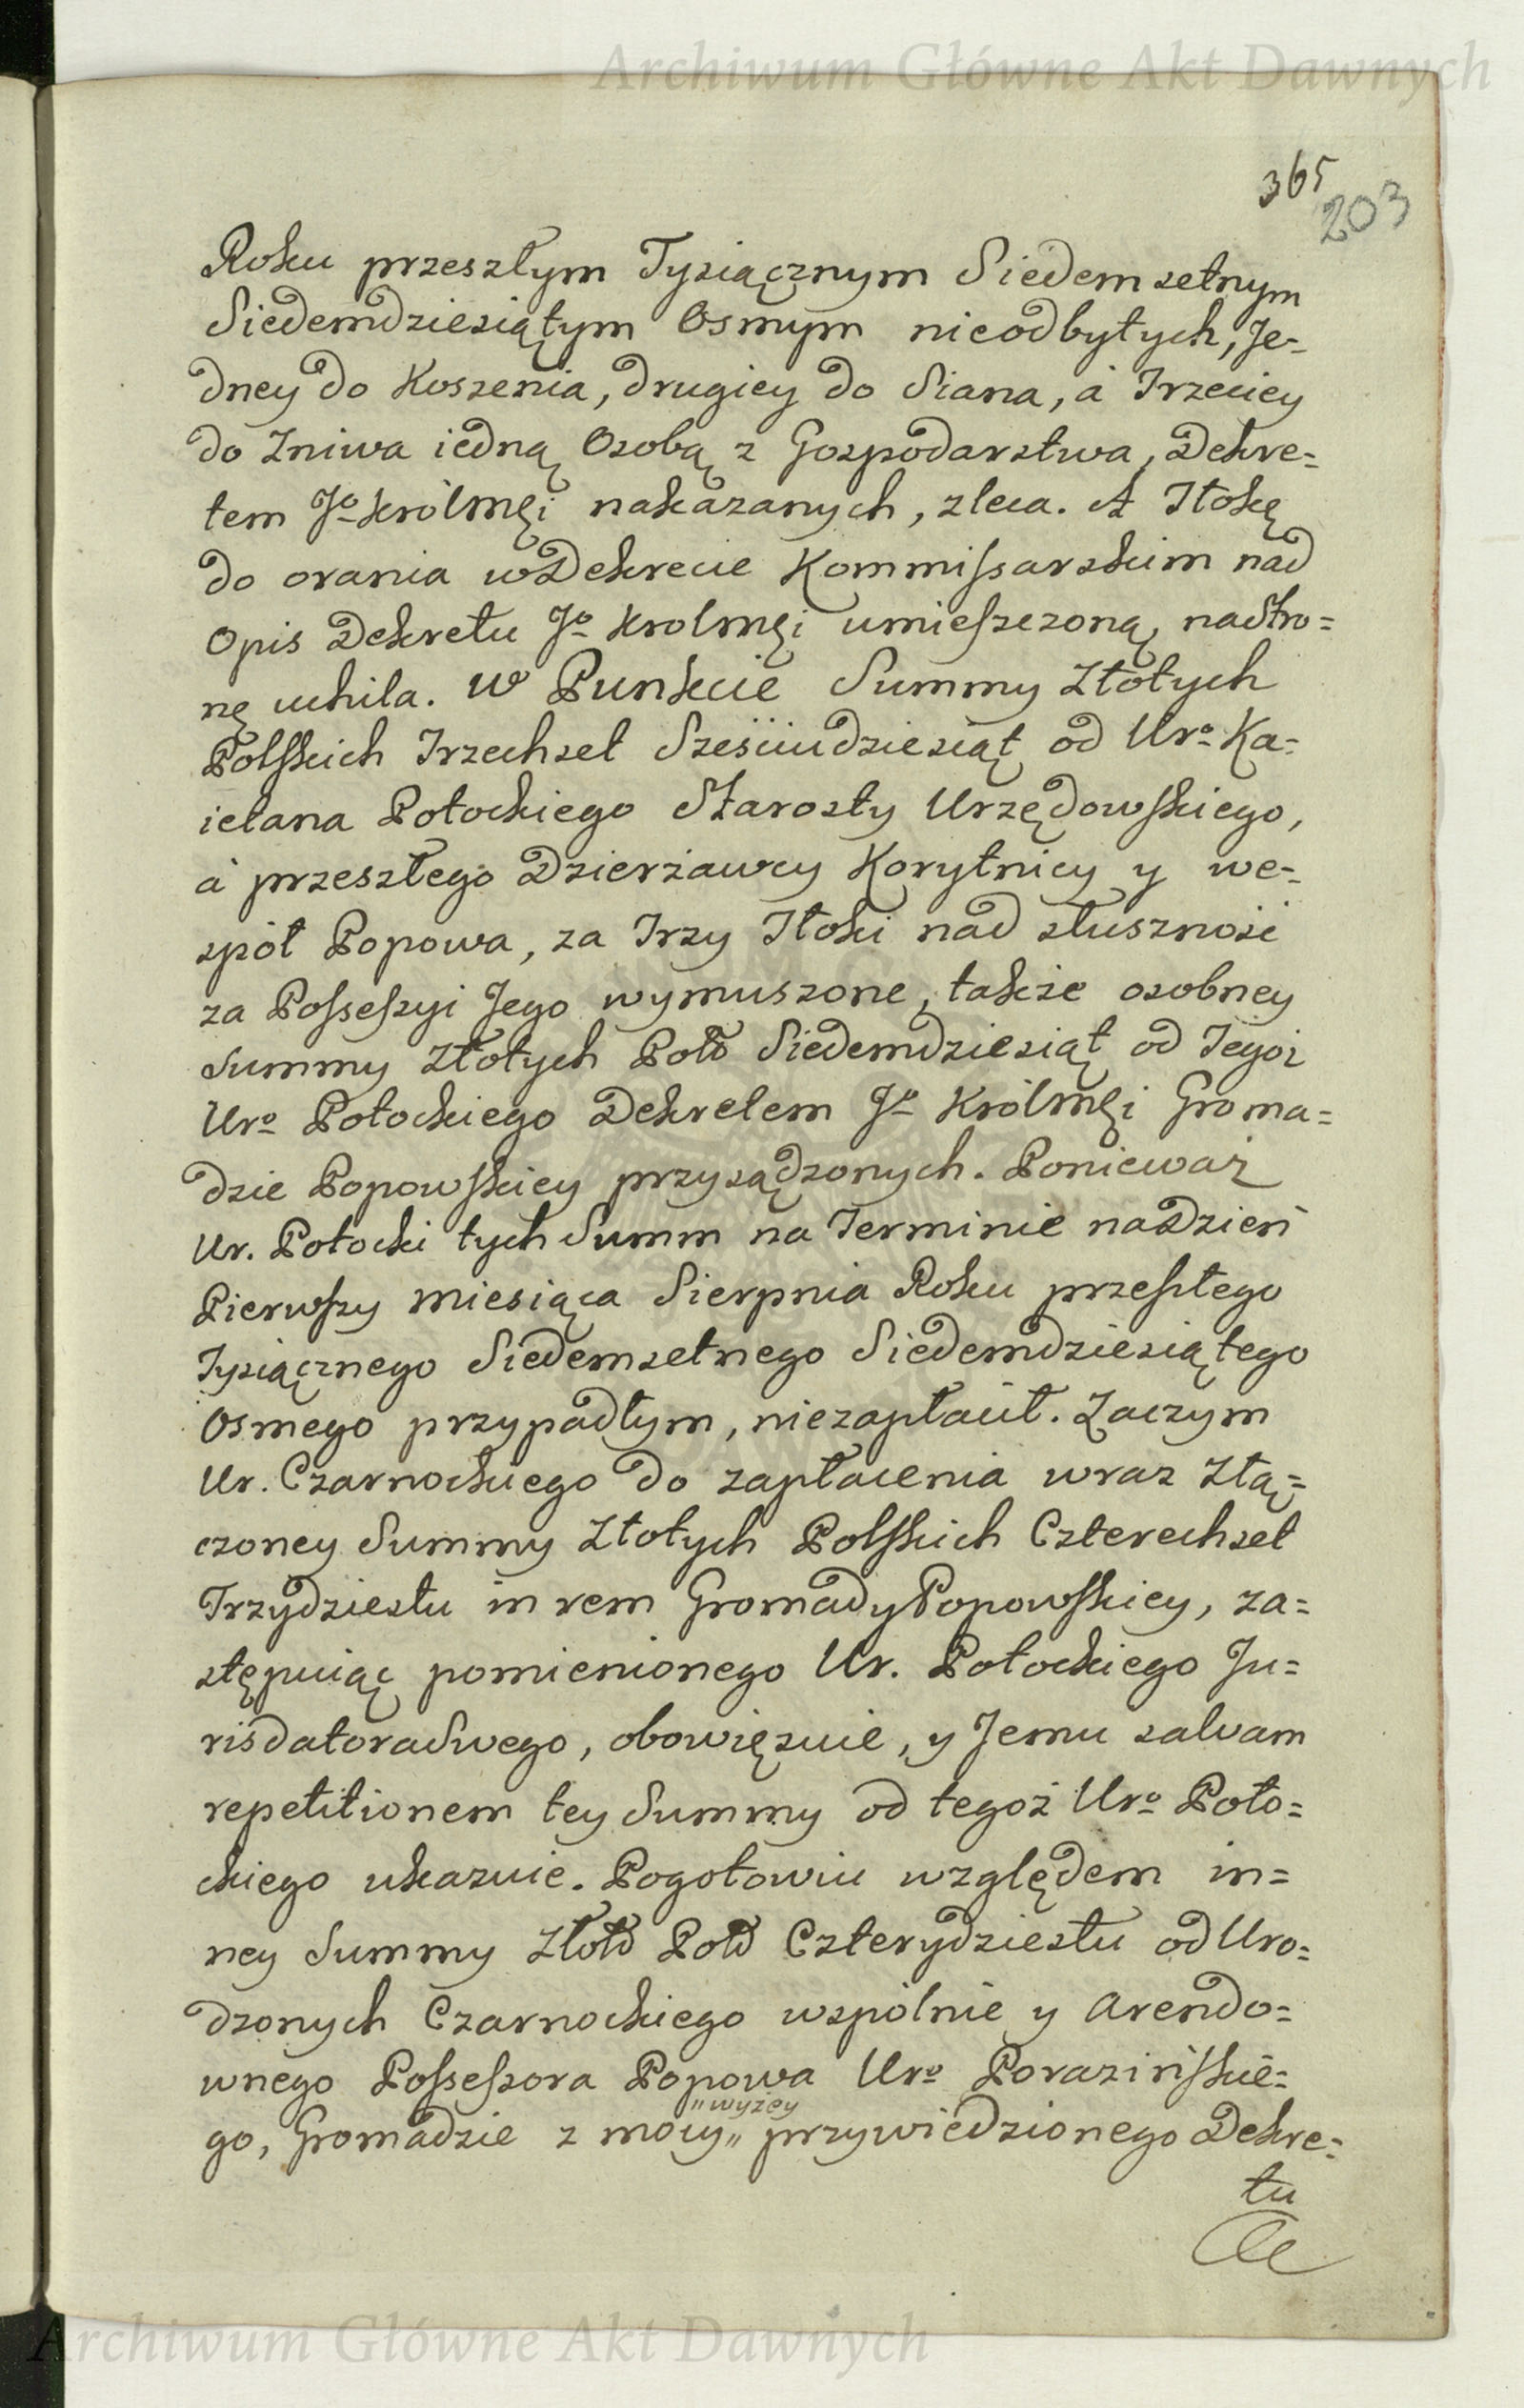 Archiwum Główne Akt Dawnych
365
203
Roku przeszłym Tysiącznym Siedemsetnym
Siedemdziesiątym Osmym nieodbytych, Je-
dney do Koszenia, drugiey do Siana, a Trzeciey
do Zniwa iedną Osobą z Gospodarstwa, Dekre=
tem Jo Królmęi nakazanych, zleca. A Tłokę
do orania w Dekrecie Kommissarskim nad
Opis Dekretu Jo Krolmęi umieszczoną, na Stro=
nę uchila. W Punkcie Summy Złotych
Polskich Trzechset Sześciudziesiąt od Uro Ka=
ietana Potockiego Starosty Urzędowskiego,
a przeszłego Dzierżawcy Korytnicy y we=
spół Popowa, za Trzy Tłoki nad słuszność
za Possessyi Jego wymuszone, także osobney
Summy Złotych Pol Siedemdziesiąt od Tegoż
Uro Potockiego Dekretem Jo Królmęi Groma=
dzie Popowskiey przysądzonych. Ponieważ
Ur. Potocki tych Summ na Terminie na Dzień
Pierwszy Miesiąca Sierpnia Roku przeszłego
Tysiącznego Siedemsetnego Siedemdziesiątego
Osmego przypadłym, niezapłacił. Zaczym
Ur. Czarnockiego do zapłacenia wraz Złą=
czoney Summy Złotych Polskich Czterechset
Trzydziestu in rem Gromady Popowskiey, za=
stępuiąc pomienionego Ur. Potockiego Ju=
risdatora Swego, obowięzuie, y Jemu salvam
repetitionem tey Summy od tegoż Uro Poto=
ckiego ukazuie. Pogotowiu względem in=
ney Summy Złotł Pol Czterydziestu od Uro=
dzonych Czarnockiego wspólnie y Arendo=
wnego Possessora Popowa Uro Porazińskie=
"wyżey
go, Gromadzie z mocy" przywiedzionego Dekre=
tu
Archiwum Główne Akt Dawnych